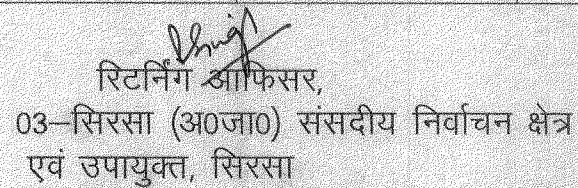 रिटर्निंग आफिसर,
03–सिरसा (अ0जा0) संसदीय निर्वाचन क्षेत्र
एवं उपायुक्त, सिरसा